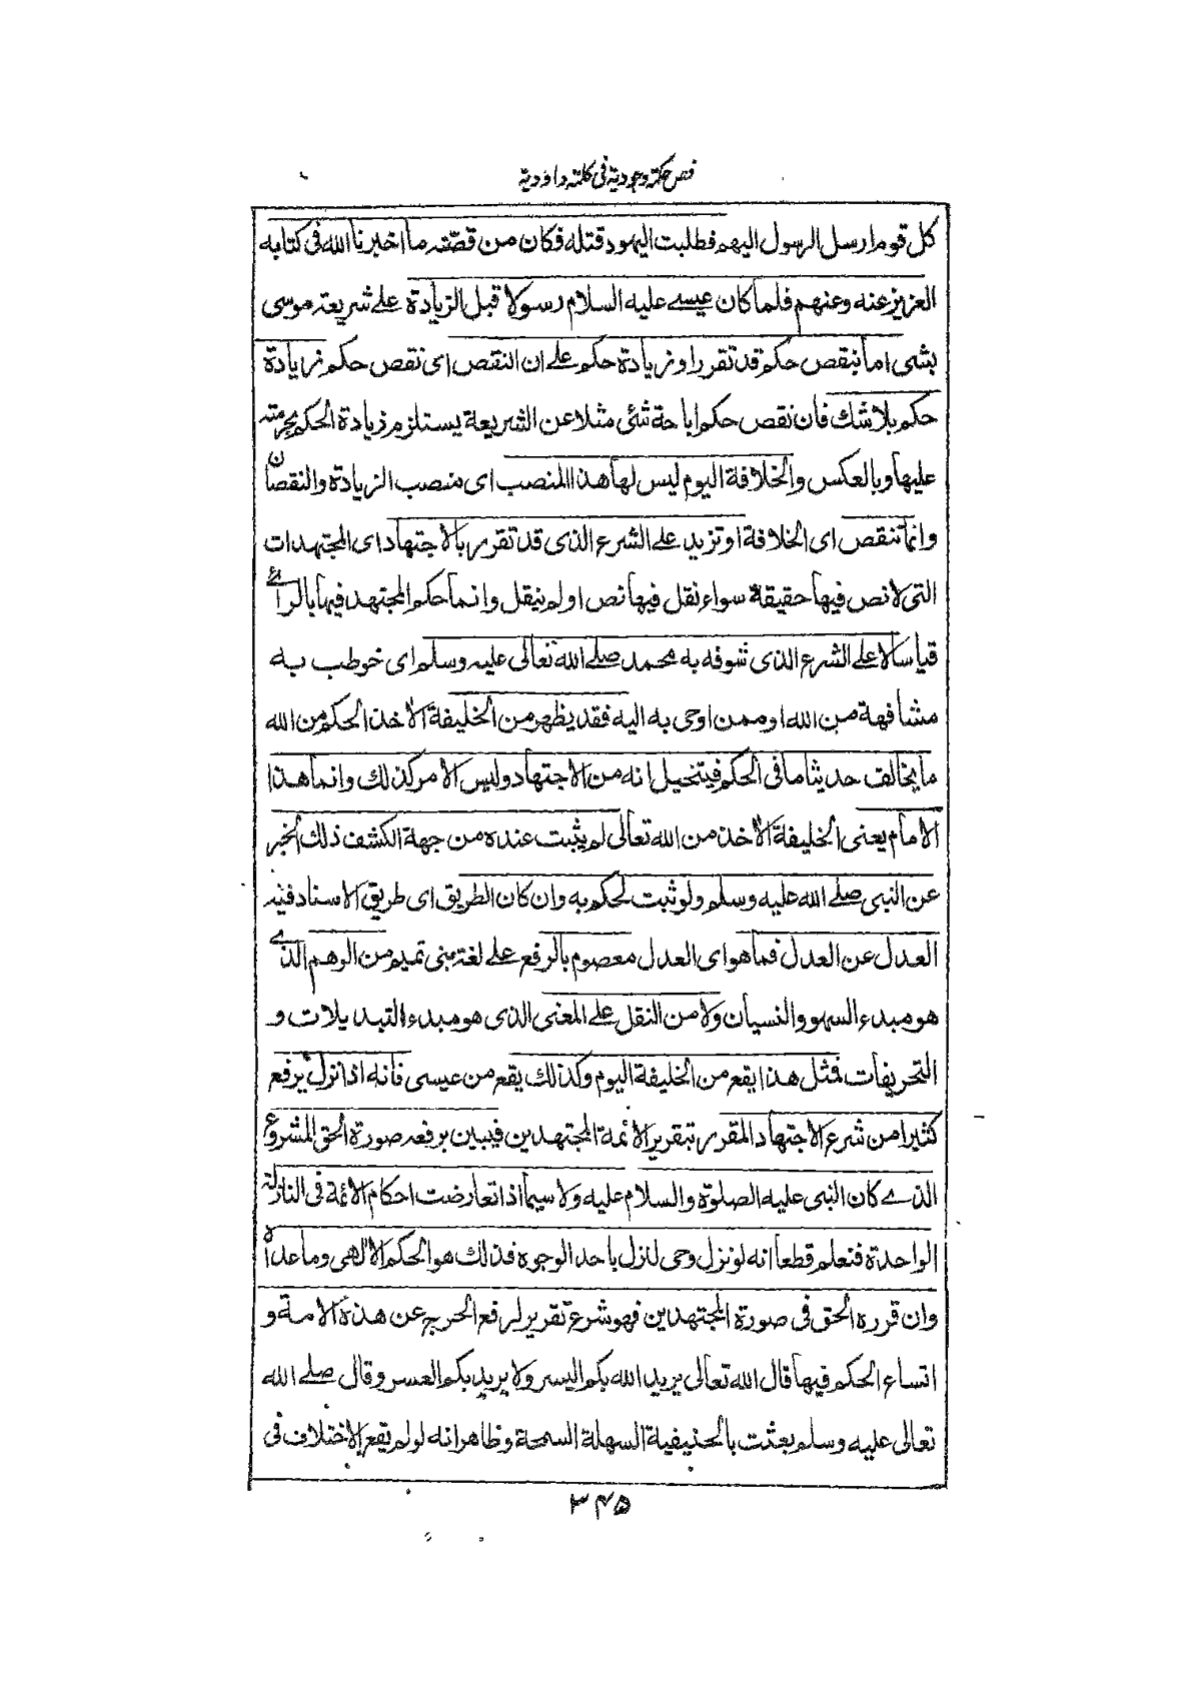 فص حكمة وجودية فى كلمة داؤدية
كل قوم ارسل الرسول اليهم فطلبت اليهود قتله فكان من قصّته ما اخبرنا الله فى كتابه
العزيز عنه وعنهم فلما كان عيسے عليه السلام رسولا قبل الزيادة علے شريعة موسى
بشى اما بنقص حكم قد تقرر او زيادة حكم علے ان النقص اى نقص حكم زيادة
حكم بلا شك فان نقص حكم اباحة شئ مثلا عن الشريعة يستلزم زيادة الحكم بحرمته
عليها وبالعكس والخلافة اليوم ليس لها هذا المنصب اى منصب الزيادة والنقصان
وانما تنقص اى الخلافة او تزيد علے الشرع الذى قد تقرر بالاجتهاد اى المجتهدات
التى لا نص فيها حقيقة سواء نقل فيها نص او لم ينقل وانما حكم المجتهد فيها بالرأے
قياسا لا على الشرع الذى شوفه به محمد صلے الله تعالى عليه وسلم اى خوطب به
مشافهة من الله او ممن اوحى به اليه فقد يظهر من الخليفة الاخذ الحكم من الله
ما يخالف حديثا ما فى الحكم فيتخيل انه من الاجتهاد وليس الامر كذلك وانما هذا
الامام يعنى الخليفة الاخذ من الله تعالى لم يثبت عنده من جهة الكشف ذلك الخبر
عن النبى صلے الله عليه وسلم ولو ثبت لحكم به وان كان الطريق اى طريق الاسناد فيه
العدل عن العدل فما هو اى العدل معصوم بالرفع على لغة بنى تميم من الوهم الذے
هو مبدء السهو والنسيان ولا من النقل علے المعنى الذى هو مبدء التبديلات و
التحريفات فمثل هذا يقع من الخليفة اليوم وكذلك يقع من عيسى فانه اذا نزل يرفع
كثيرا من شرع الاجتهاد المقرر بتقرير الائمة المجتهدين فيبين برفعه صورة الحق المشروع
الذے كان النبى عليه الصلوة والسلام عليه ولا سيما اذا تعارضت احكام الائمة فى النازلة
الواحدة فنعلم قطعا انه لو نزل وحى لنزل باحد الوجوه فذلك هو الحكم الالهى وما عداه
وان قرره الحق فى صورة المجتهدين فهو شرع تقرير لرفع الحرج عن هذه الامة و
اتساع الحكم فيها قال الله تعالى يريد الله بكم اليسر ولا يريد بكم العسر وقال صلے الله
تعالى عليه وسلم بعثت بالحنيفية السهلة السمحة وظاهر انه لو لم يقع الاختلاف فى
۳۴۵